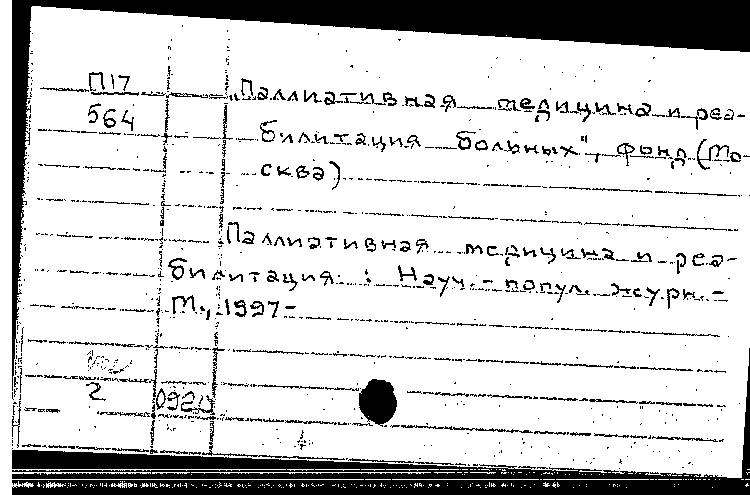 П17
564
„Паллиативная медицина и реа-
билитация больных", фонд (Мо
сква)
Паллиативная медицина и реа-
билитация : Науч.-попул. журн.-
М., 1997-
2